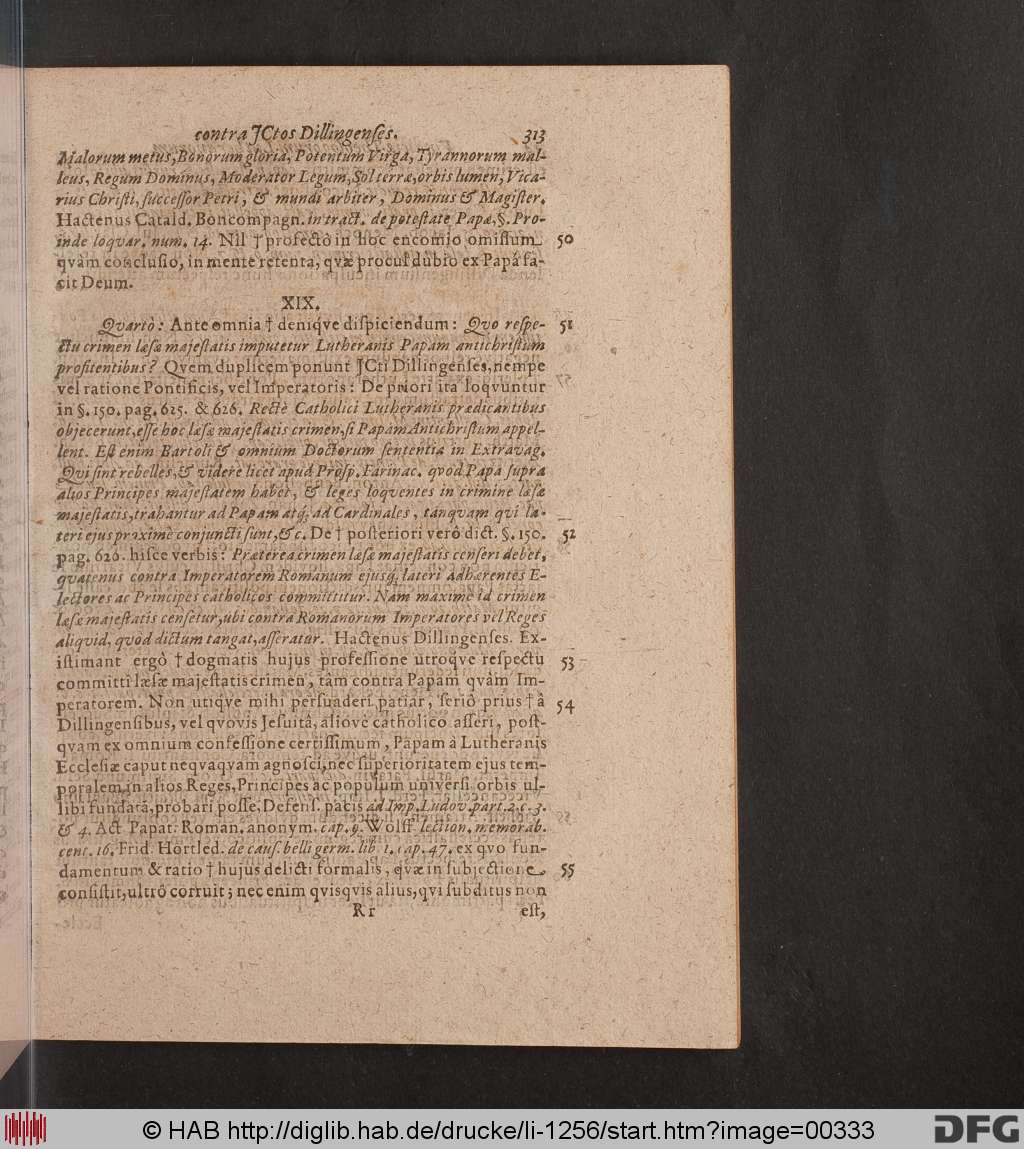 contra JCtos Dillingenſes. 313
Malorum metus, Bonorum gloria, Potentum Virga, Tyrannorum mal-
leus, Regum Dominus, Moderator Legum, Sol terræ, orbis lumen, Vica-
rius Chriſti, ſucceſſor Petri, & mundi arbiter, Dominus & Magiſter.
Hactenus Catald. Boncompagn. in tract. de poteſtate Papæ, §. Pro-
inde loquar. num. 14. Nil † profectò in hoc encomio omiſſum 50
qvàm concluſio, in mente retenta, qvæ procul dubio ex Papâ fa-
cit Deum.
XIX.
Qvartò: Ante omnia † deniqve diſpiciendum: Qvo reſpe- 51
ctu crimen læſæ majeſtatis imputetur Lutheranis Papam antichriſtum
profitentibus? Qvem duplicem ponunt JCti Dillingenſes, nempe
vel ratione Pontificis, vel Imperatoris: De priori ita loqvuntur
in §. 150. pag. 625. & 626. Rectè Catholici Lutheranis prædicantibus
objecerunt, eſſe hoc læſæ majeſtatis crimen, ſi Papam Antichriſtum appel-
lent. Eſt enim Bartoli & omnium Doctorum ſententia in Extravag.
Qui ſint rebelles, & videre licet apud Proſp. Farinac. qvod Papa ſupra
alios Principes majeſtatem habet, & leges loqventes in crimine læſæ
majeſtatis, trahantur ad Papam atq; ad Cardinales, tanqvam qvi la-
teri ejus proximè conjuncti ſunt, &c. De † poſteriori verò dict. §. 150. 52
pag. 626. hiſce verbis: Præterea crimen læſæ majeſtatis cenſeri debet,
qvatenus contra Imperatorem Romanum ejusq; lateri adhærentes E-
lectores ac Principes catholicos committitur. Nam maximè id crimen
læſæ majeſtatis cenſetur, ubi contra Romanorum Imperatores vel Reges
aliqvid, qvod dictum tangat, aſſeratur. Hactenus Dillingenſes. Ex-
iſtimant ergò † dogmatis hujus profeſſione utroqve reſpectu 53
committi læſæ majeſtatis crimen, tàm contra Papam qvàm Im-
peratorem. Non utiqve mihi perſuaderi patiar, ſeriò prius † à 54
Dillingenſibus, vel qvovis Jeſuitâ, aliove catholico aſſeri, poſt-
qvam ex omnium confeſſione certiſſimum, Papam à Lutheranis
Eccleſiæ caput neqvaqvam agnoſci, nec ſuperioritatem ejus tem-
poralem in alios Reges, Principes ac populum univerſi orbis ul-
libi fundatâ, probari poſſe. Defenſ. pacis ad Imp. Ludov. part. 2. c. 3.
& 4. Act. Papat. Roman. anonym. cap. 9. Wolff. lection. memorab.
cent. 16. Frid. Hortled. de cauſ. belli germ. lib. 1. cap. 47. ex qvo fun-
damentum & ratio † hujus delicti formalis, qvæ in ſubjectione 55
conſiſtit, ultrò corruit; nec enim qvisqvis alius, qvi ſubditus non
Rr eſt,
© HAB http://diglib.hab.de/drucke/li-1256/start.htm?image=00333
DFG